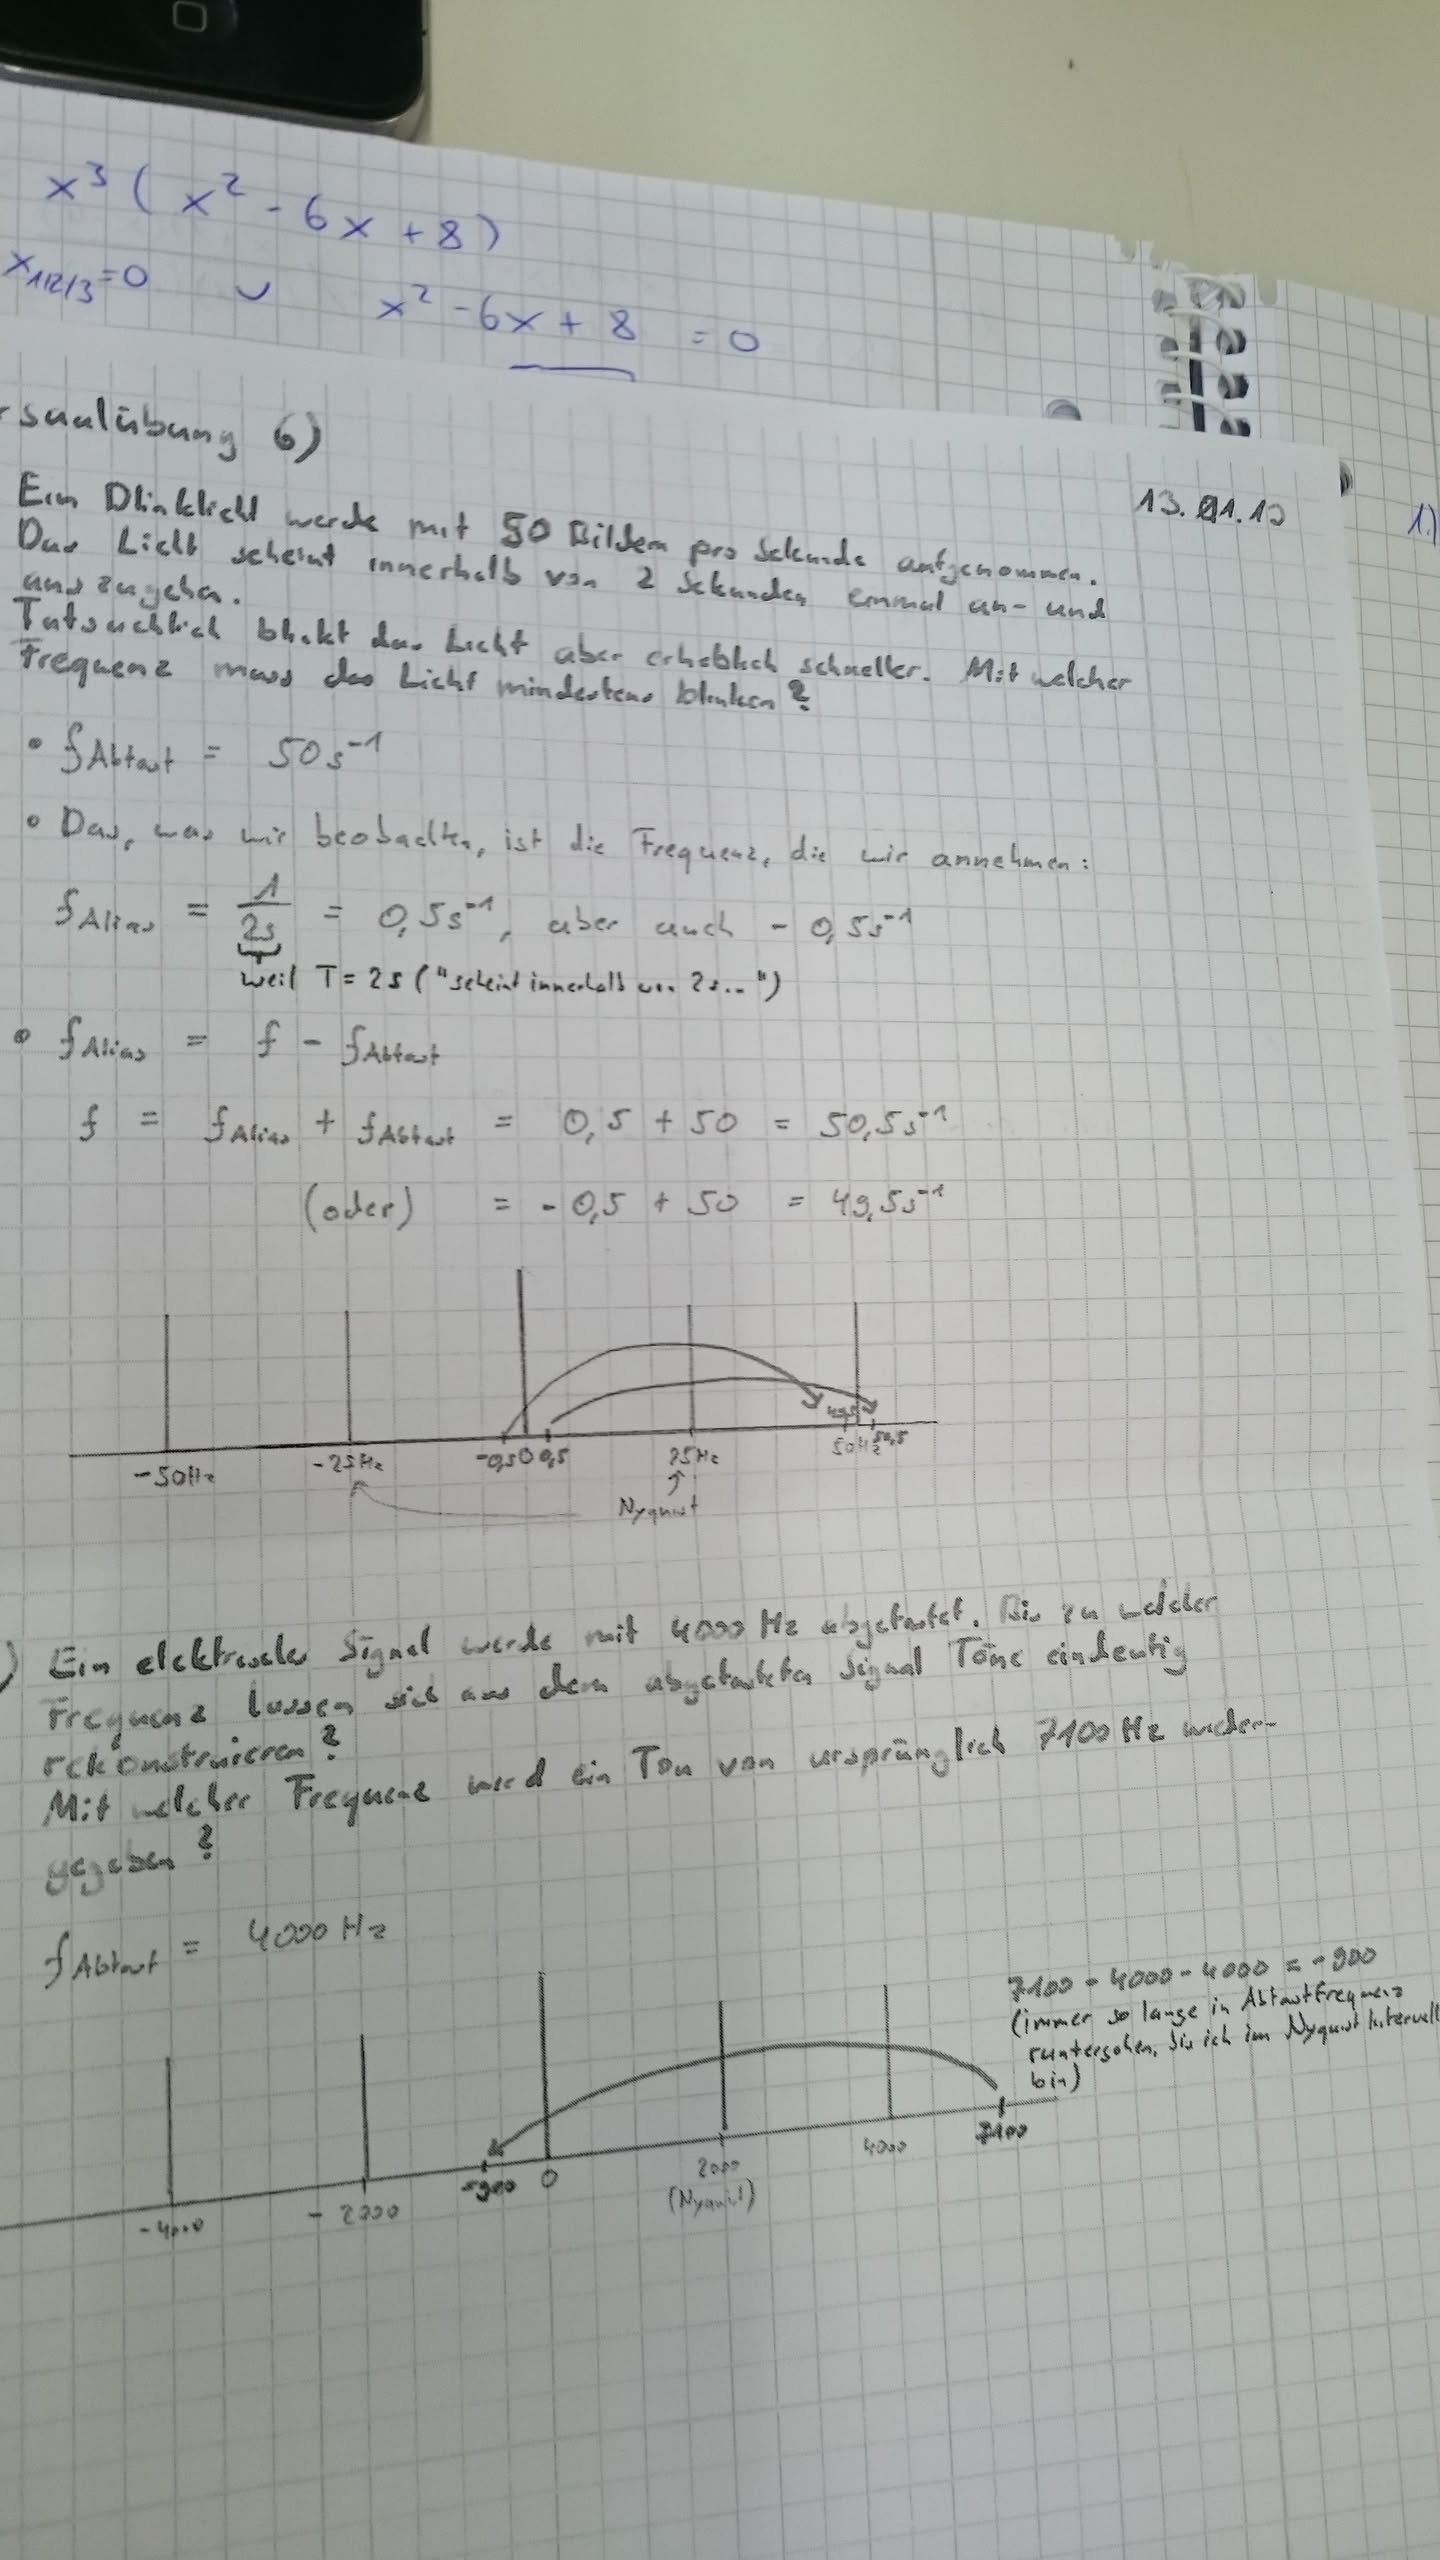 x³ ( x² - 6x + 8 )
x1/2/3 = 0 ∨ x² - 6x + 8 = 0
rsaalübung 6)
13.01.1
1.)
Ein Blinklicht werde mit 50 Bildern pro Sekunde aufgenommen.
Das Licht scheint innerhalb von 2 Sekunden einmal an- und
auszugehen.
Tatsächlich blinkt das Licht aber erheblich schneller. Mit welcher
Frequenz muss das Licht mindestens blinken?
• fAbtast = 50 s⁻¹
• Das, was wir beobachten, ist die Frequenz, die wir annehmen:
fAlias = 1/2s = 0,5s⁻¹, aber auch - 0,5s⁻¹
weil T = 2s ("scheint innerhalb von 2s...")
• fAlias = f - fAbtast
f = fAlias + fAbtast = 0,5 + 50 = 50,5s⁻¹
(oder) = - 0,5 + 50 = 49,5s⁻¹
49,5
-50Hz -25Hz -0,5 0 0,5 25Hz 50Hz 50,5
Nyquist
) Ein elektrisches Signal werde mit 4000 Hz abgetastet. Bis zu welcher
Frequenz lassen sich aus dem abgetasteten Signal Töne eindeutig
rekonstruieren?
Mit welcher Frequenz wird ein Ton von ursprünglich 7100 Hz wieder-
gegeben?
fAbtast = 4000 Hz
7100 - 4000 - 4000 = -900
(immer so lange in Abtastfrequenz
runtergehen, bis ich im Nyquist Intervall
bin)
-4000 -2000 -900 0 2000 4000 7100
(Nyquist)